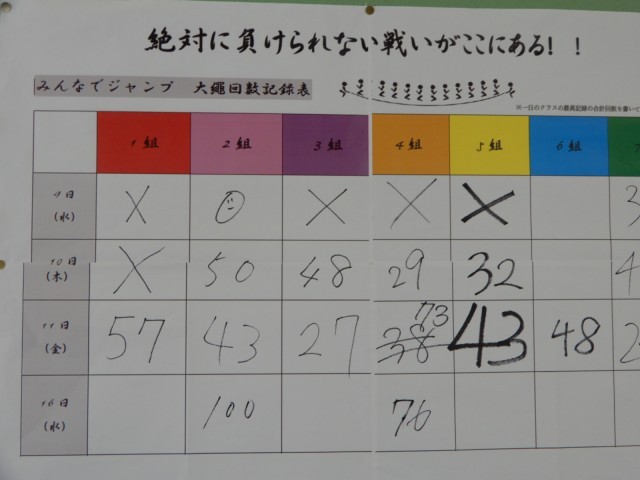 絶対に負けられない戦いがここにある!!
みんなでジャンプ 大縄回数記録表
※一日のクラスの最高記録の合計回数を書いて
1組 2組 3組 4組 5組 6組 7
9日(水) X X X X 3
10日(木) X 50 48 29 32 4
11日(金) 57 43 27 73 43 48 2
16日(水) 100 76